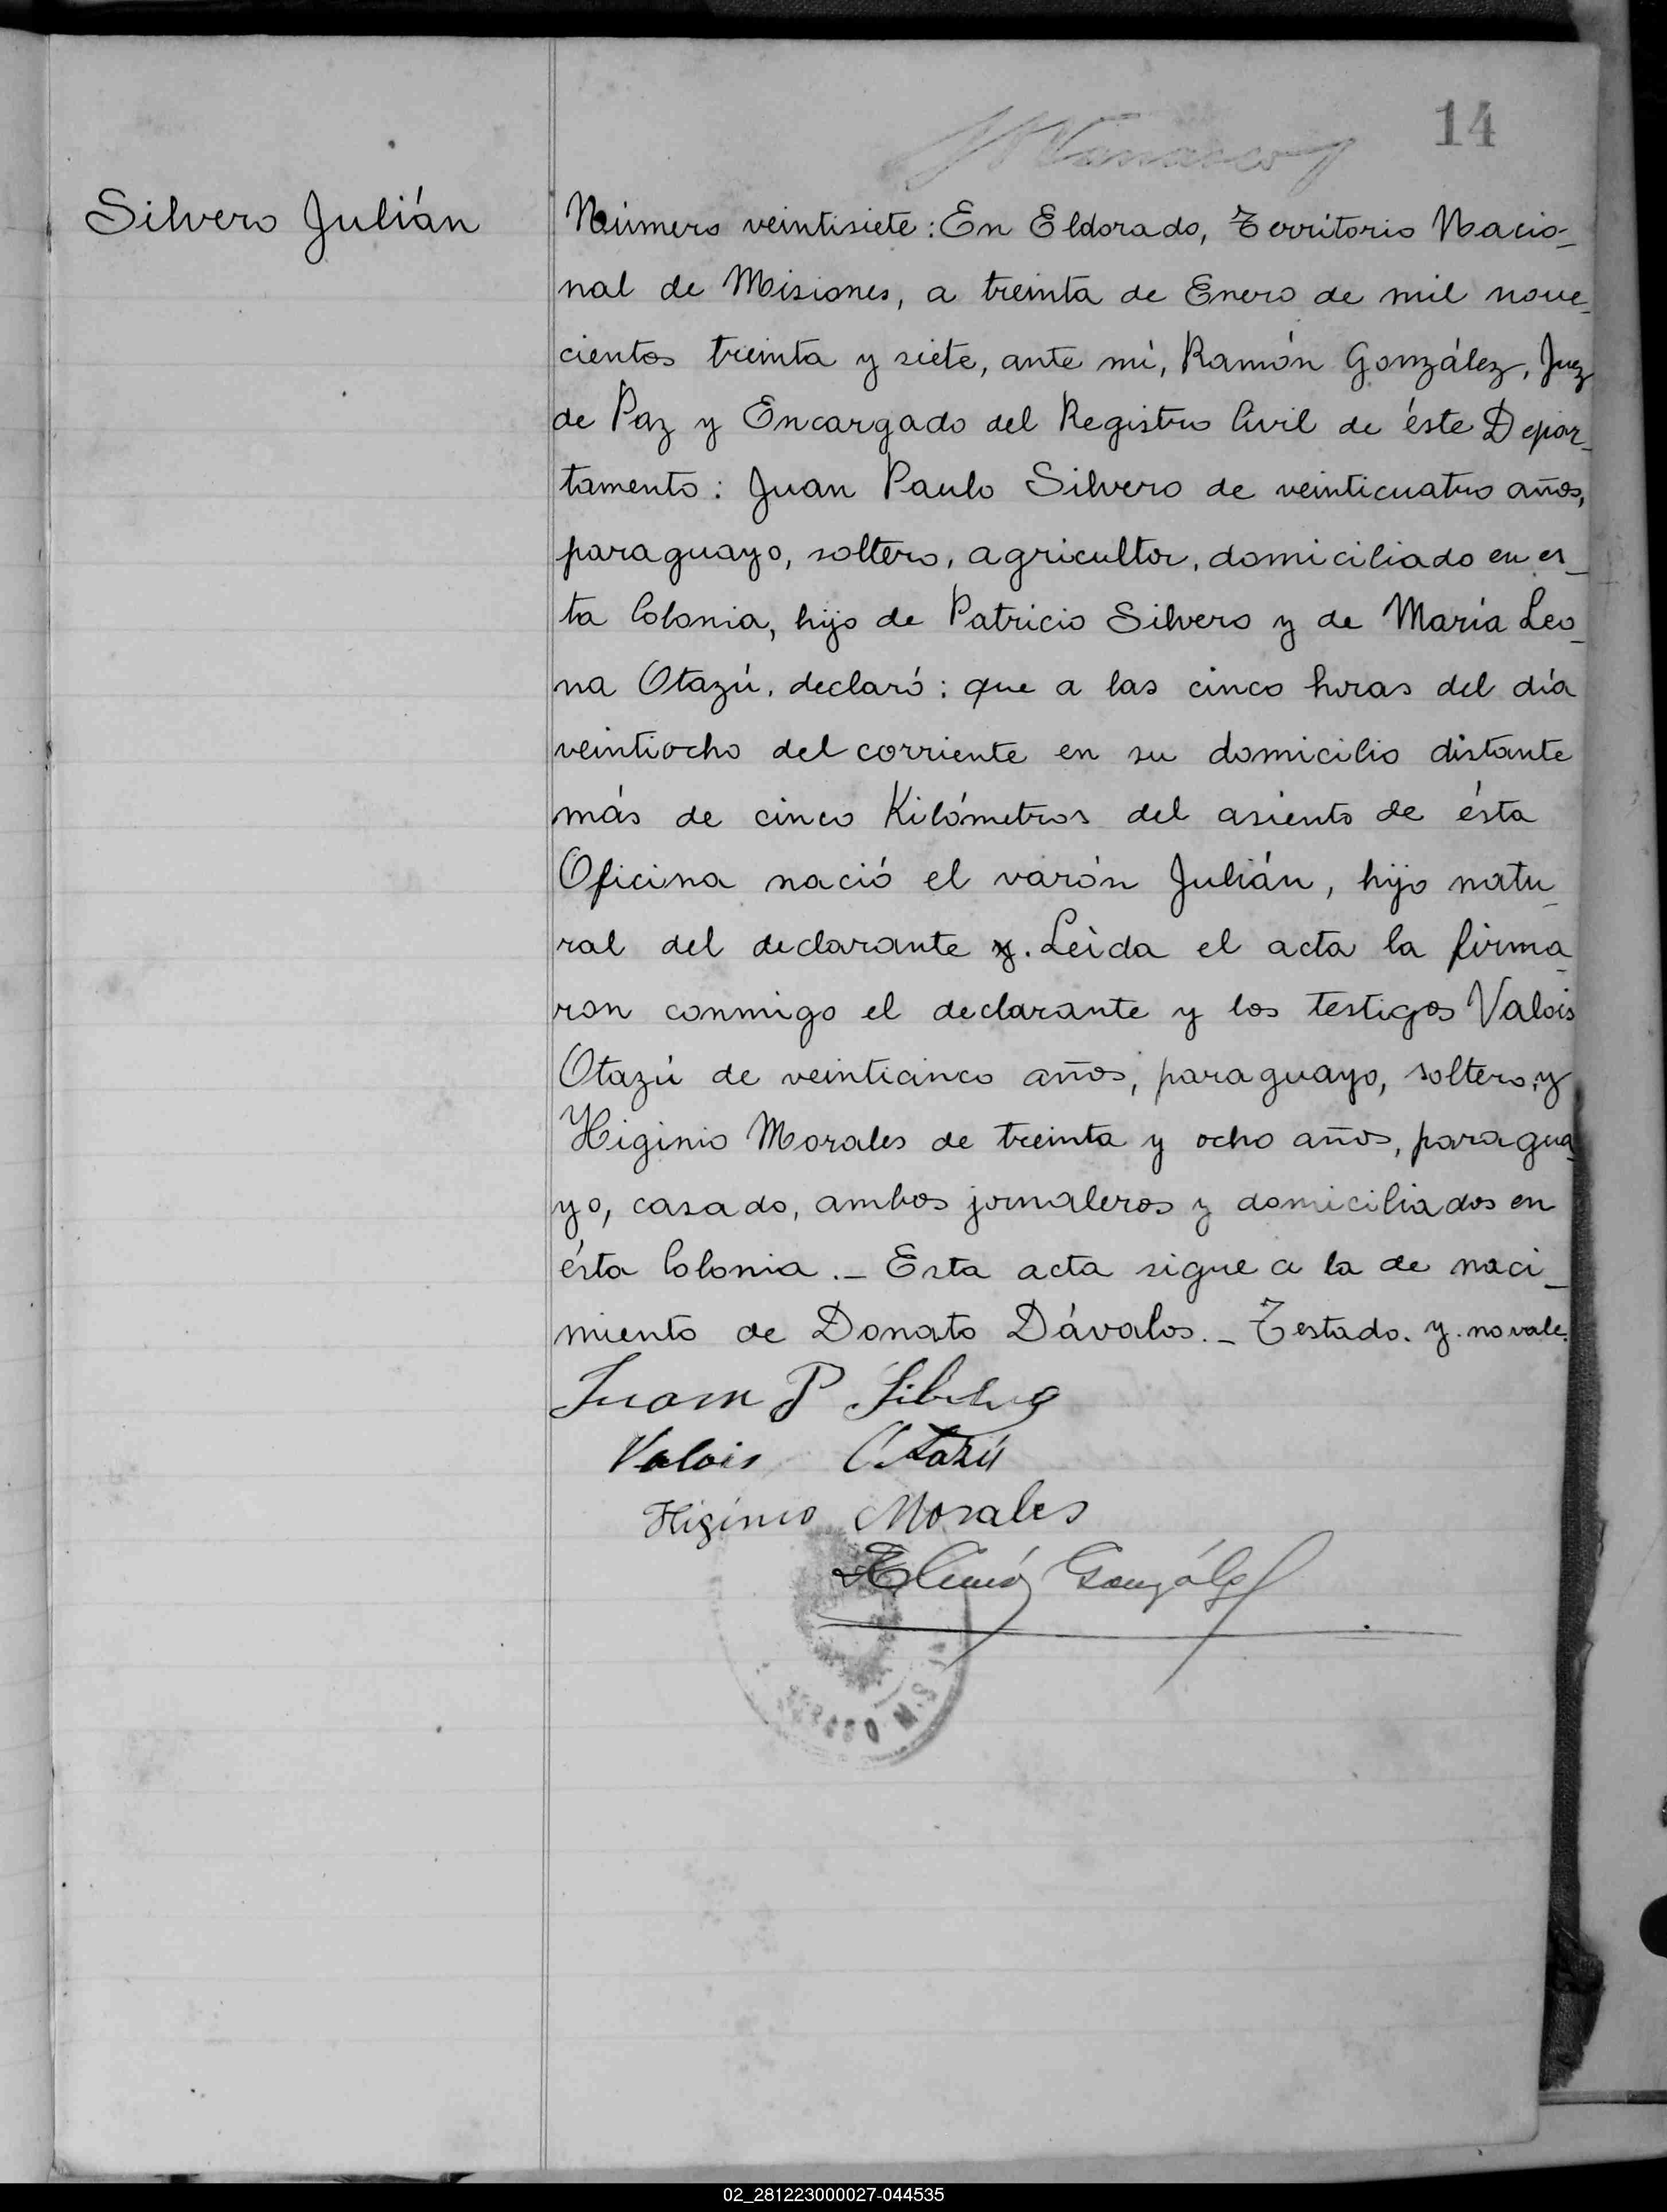 14
Silvero Julián
Número veintisiete: En Eldorado, Territorio Nacio-
nal de Misiones, a treinta de Enero de mil nove-
cientos treinta y siete, ante mí, Ramón González, Juez
de Paz y Encargado del Registro Civil de éste Depar-
tamento: Juan Paulo Silvero de veinticuatro años,
paraguayo, soltero, agricultor, domiciliado en es-
ta Colonia, hijo de Patricio Silvero y de María Leo-
na Otazú, declaró: que a las cinco horas del día
veintiocho del corriente en su domicilio distante
más de cinco Kilómetros del asiento de ésta
Oficina nació el varón Julián, hijo natu-
ral del declarante y. Leída el acta la firma-
ron conmigo el declarante y los testigos Valois
Otazú de veinticinco años, paraguayo, soltero, y
Higinio Morales de treinta y ocho años, paragua-
yo, casado, ambos jornaleros y domiciliados en
ésta Colonia.- Esta acta sigue a la de naci-
miento de Donato Dávalos.- Testado. y. no vale.
Juan P Silvero
Valois Otazú
Higinio Morales
Ramón González
02_281223000027-044535